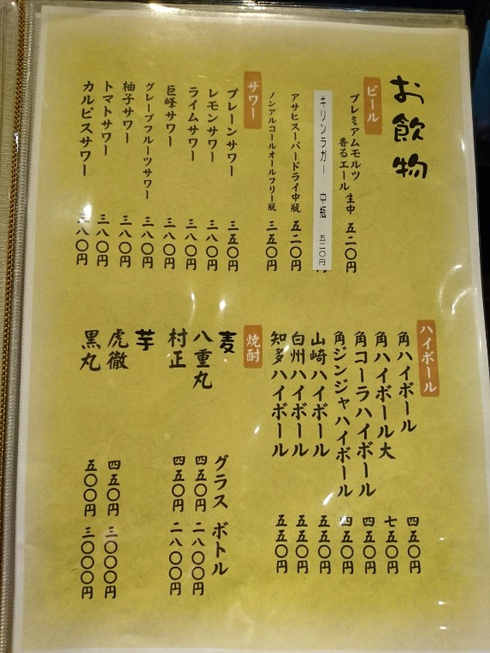 お飲物
ビール
プレミアムモルツ
香るエール 生中 五二〇円
キリンラガー 中瓶 五二〇円
アサヒスーパードライ中瓶 五二〇円
ノンアルコールオールフリー瓶 三五〇円
サワー
プレーンサワー 三五〇円
レモンサワー 三八〇円
ライムサワー 三八〇円
巨峰サワー 三八〇円
グレープフルーツサワー 三八〇円
柚子サワー 三八〇円
トマトサワー 三八〇円
カルピスサワー 三八〇円
ハイボール
角ハイボール 四五〇円
角ハイボール大 七五〇円
角コーラハイボール 四五〇円
角ジンジャハイボール 四五〇円
山崎ハイボール 五五〇円
白州ハイボール 五五〇円
知多ハイボール 五五〇円
焼酎
麦 グラス ボトル
八重丸 四五〇円 二八〇〇円
村正 四五〇円 二八〇〇円
芋
虎徹 四五〇円 三〇〇〇円
黒丸 五〇〇円 三〇〇〇円